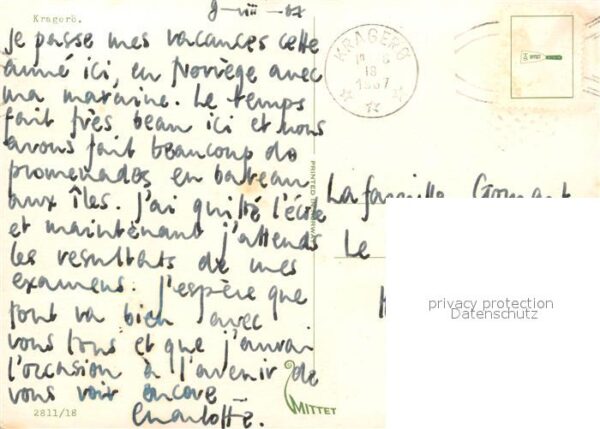 Kragerö.
8-VIII-67
Je passe mes vacances cette
année ici, en Norvège avec
ma marraine. Le temps
fait très beau ici et nous
avons fait beaucoup de
promenades en bateau
aux îles. J'ai quitté l'école
et maintenant j'attends
les resultats de mes
examens. J'espère que
tout va bien avec
vous tous et que j'aurai
l'occasion à l'avenir de
vous voir encore
Charlotte.
2811/18
MITTET
PRINTED IN NORWAY
KRAGERØ
18
1967
La famille
Le
privacy protection
Datenschutz